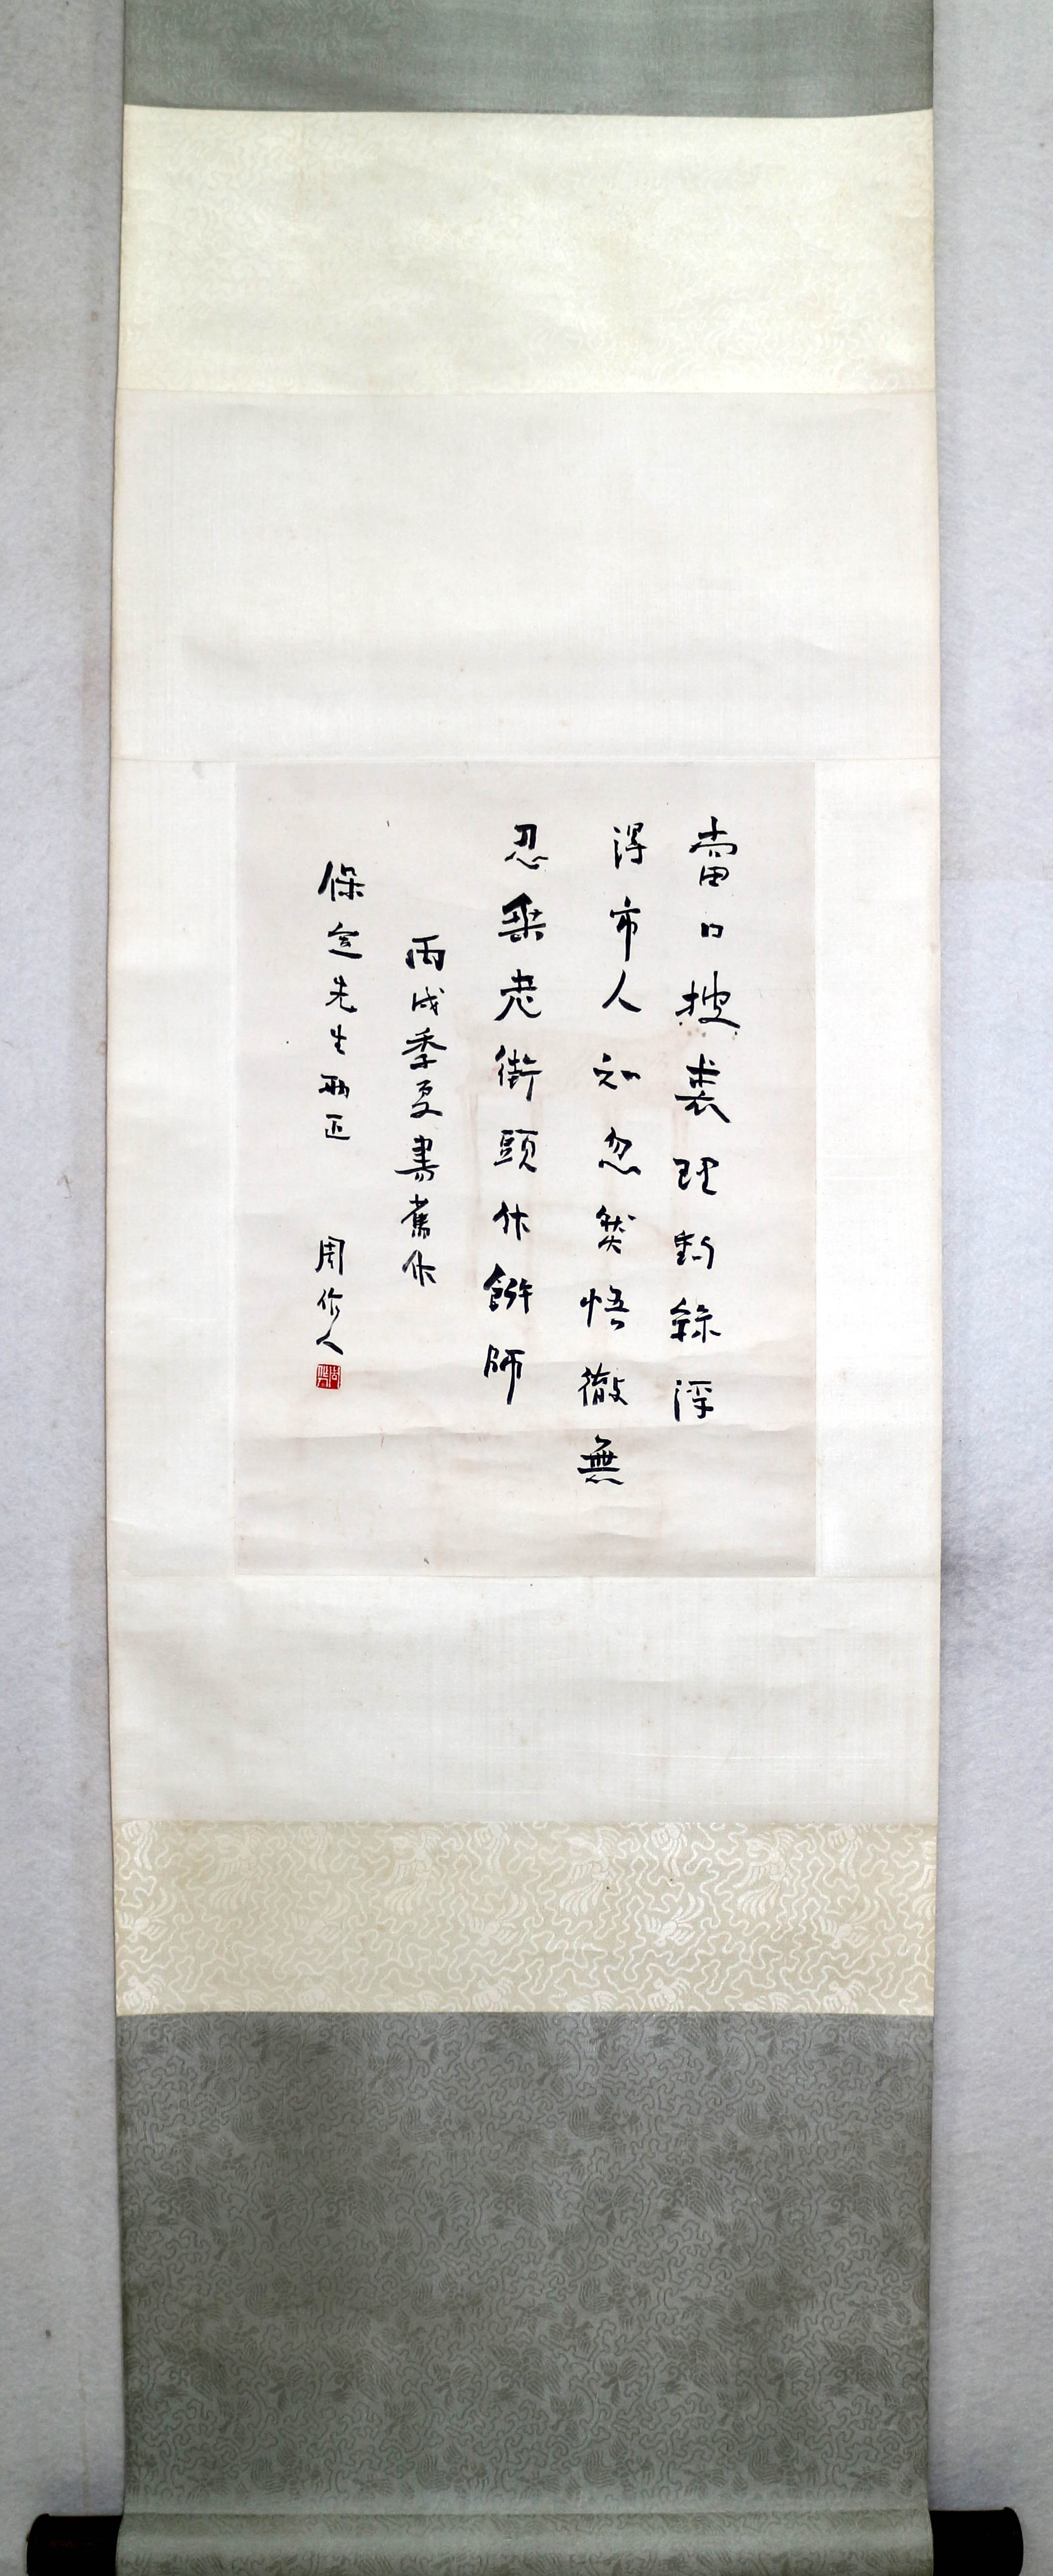 當日披裘理釣絲浮
得市人知忽然悟徹無
忍垂老街頭作餅師
丙戌季夏書舊作
保先生正
周作人